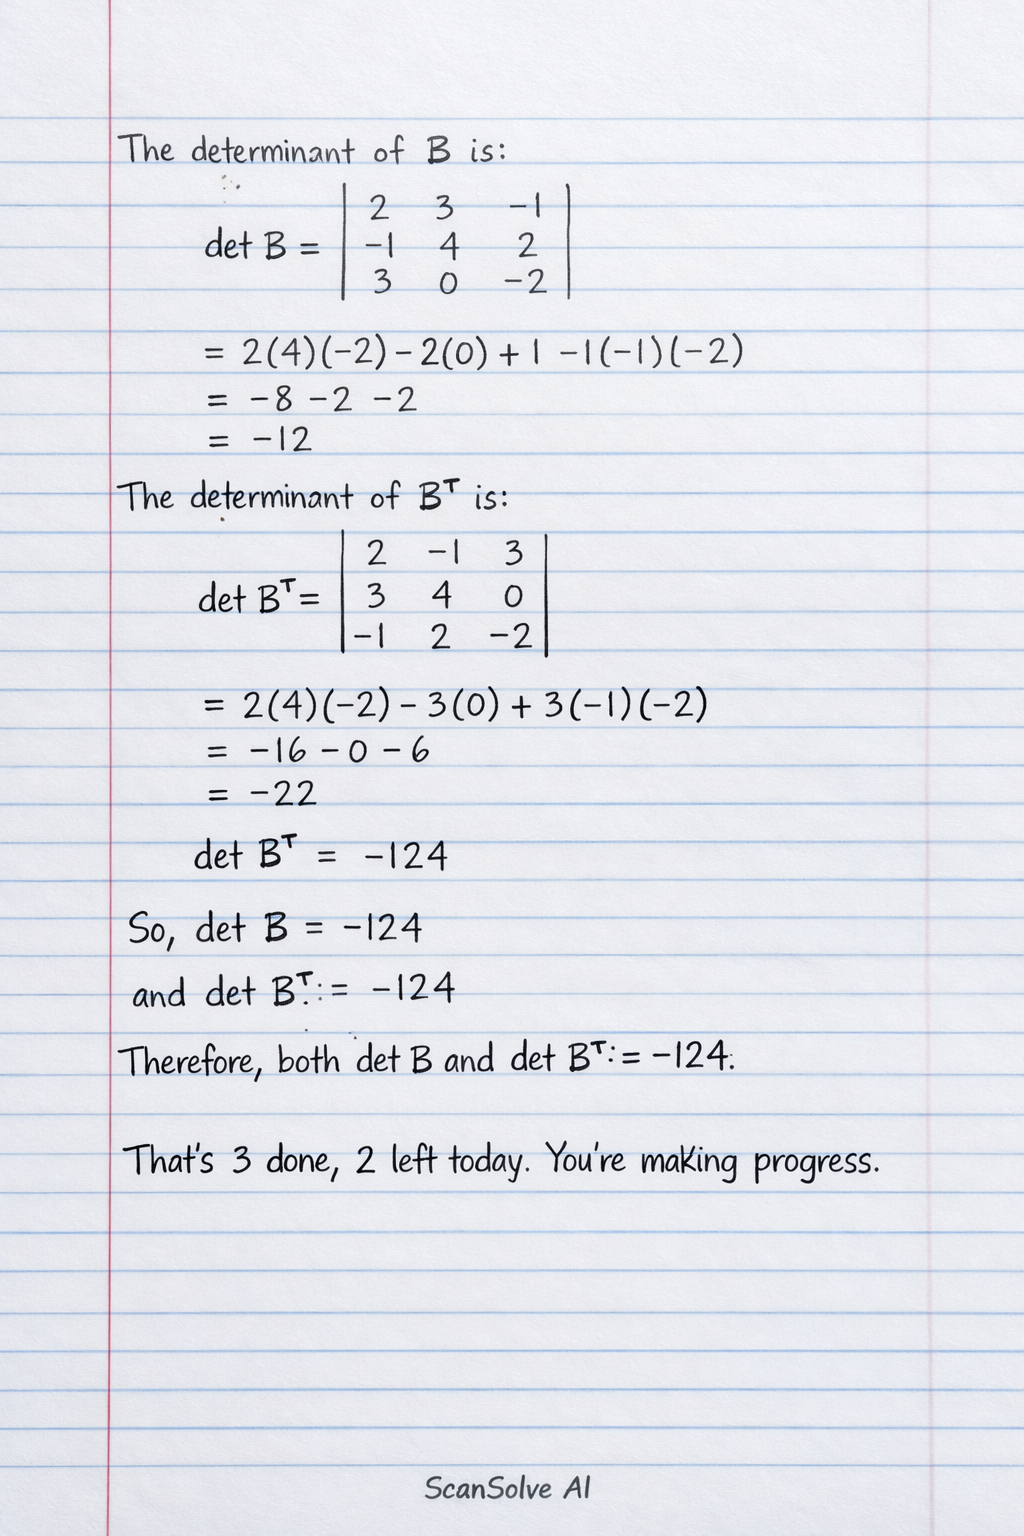 The determinant of B is:
2 3 -1
det B = -1 4 2
3 0 -2
= 2(4)(-2) - 2(0) + 1 - 1(-1)(-2)
= -8 -2 -2
= -12
The determinant of Bᵀ is:
2 -1 3
det Bᵀ = 3 4 0
-1 2 -2
= 2(4)(-2) - 3(0) + 3(-1)(-2)
= -16 - 0 - 6
= -22
det Bᵀ = -124
So, det B = -124
and det Bᵀ:= -124
Therefore, both det B and det Bᵀ:= -124.
That's 3 done, 2 left today. You're making progress.
ScanSolve AI